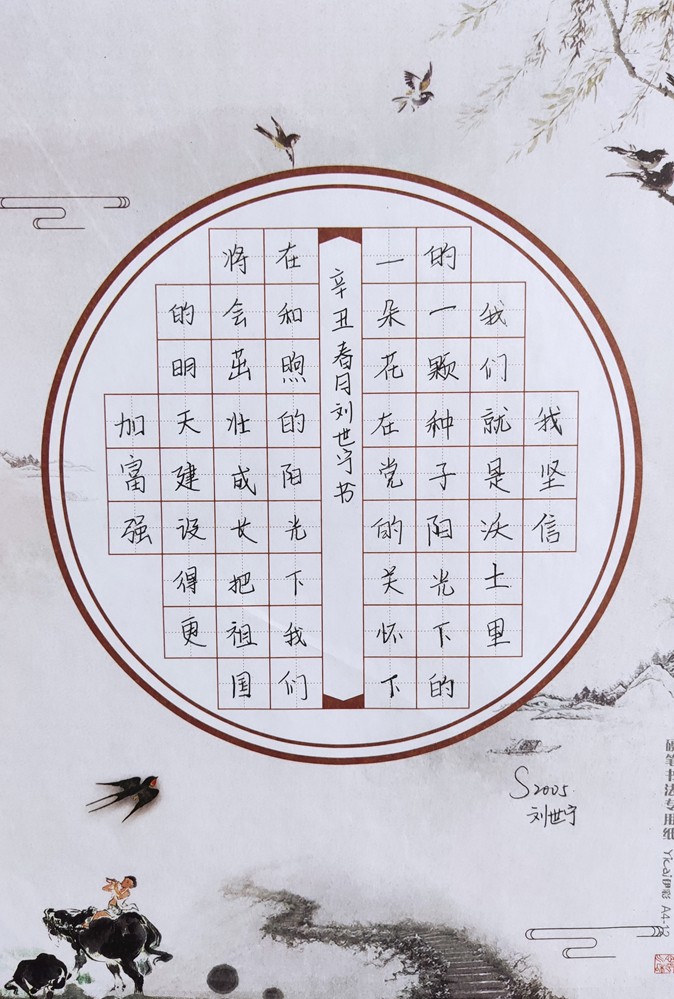 我坚信
我们就是沃土里
的一颗种子阳光下的
一朵花在党的关怀下
辛丑春月刘世宁书
在和煦的阳光下我们
将会茁壮成长把祖国
的明天建设得更
加富强
S2005.
刘世宁
硬笔书法专用纸 Yicai伊彩 A4-12